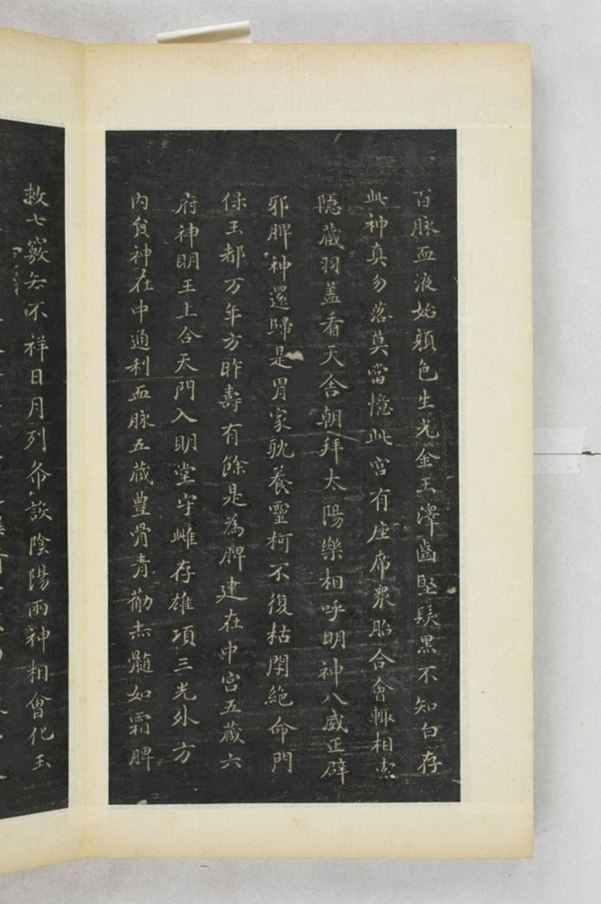 百脉血液始顏色生光金玉澤齒堅髮黒不知白存
此神真勿落莫當憶此宮有座席眾胎合會轉相索
隱藏羽蓋看天舍朝拜太陽樂相呼明神八威正辟
邪脾神還歸是胃家耽養靈柯不復枯閇絕命門
保玉都万年方昨壽有餘是為脾建在中宮五藏六
府神明王上合天門入明堂守雌存雄項三光外方
內負神在中通利血脉五藏豊骨青筋赤髓如霜脾
救七竅去不祥日月列布設陰陽兩神相會化玉